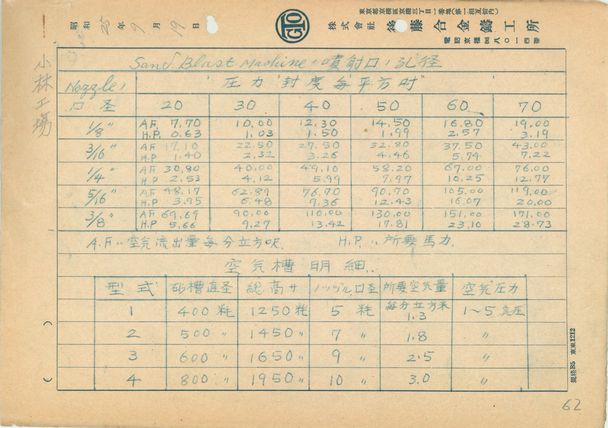 東京都京橋區京橋三丁目一番地(第一相互館内)
昭和 25 年 9 月 19 日
GTO
株式會社 後藤合金鑄工所
電話京橋
小林工場
Sand Blast Machine ノ噴射口ノ孔径
Nozzleノ口圣 圧力 封度每平方吋
20 30 40 50 60 70
1/8" A.F 7.70 10.00 12.30 14.50 16.80 19.00
H.P. 0.63 1.03 1.50 1.99 2.57 3.19
3/16" A.F 17.10 22.50 27.50 32.80 37.50 43.00
H.P 1.40 2.32 3.26 4.46 5.74 7.22
1/4" A.F 30.80 40.00 49.10 58.20 67.00 76.00
H.P. 2.53 4.12 5.99 7.97 10.25 12.77
5/16" A.F 48.17 62.89 76.70 90.70 105.00 119.00
H.P 3.95 6.48 9.36 12.43 16.07 20.00
3/8" A.F 69.69 90.00 110.00 130.00 151.00 171.00
H.P. 5.66 9.27 13.42 17.81 23.10 28.73
A.F ‥ 空気流出量每分立方呎 H.P. ‥ 所要馬力.
空気槽明細
型式 砂槽直圣 総高サ ノッヅル口圣 所要空気量 空気圧力
每分立方米
1 400 耗 1250 耗 5 耗 1.3 1~5 気圧
2 500 〃 1450 〃 7 〃 1.8 〃
3 600 〃 1650 〃 9 〃 2.5 〃
4 800 〃 1950 〃 10 〃 3.0 〃
規格B5 東東1212
62